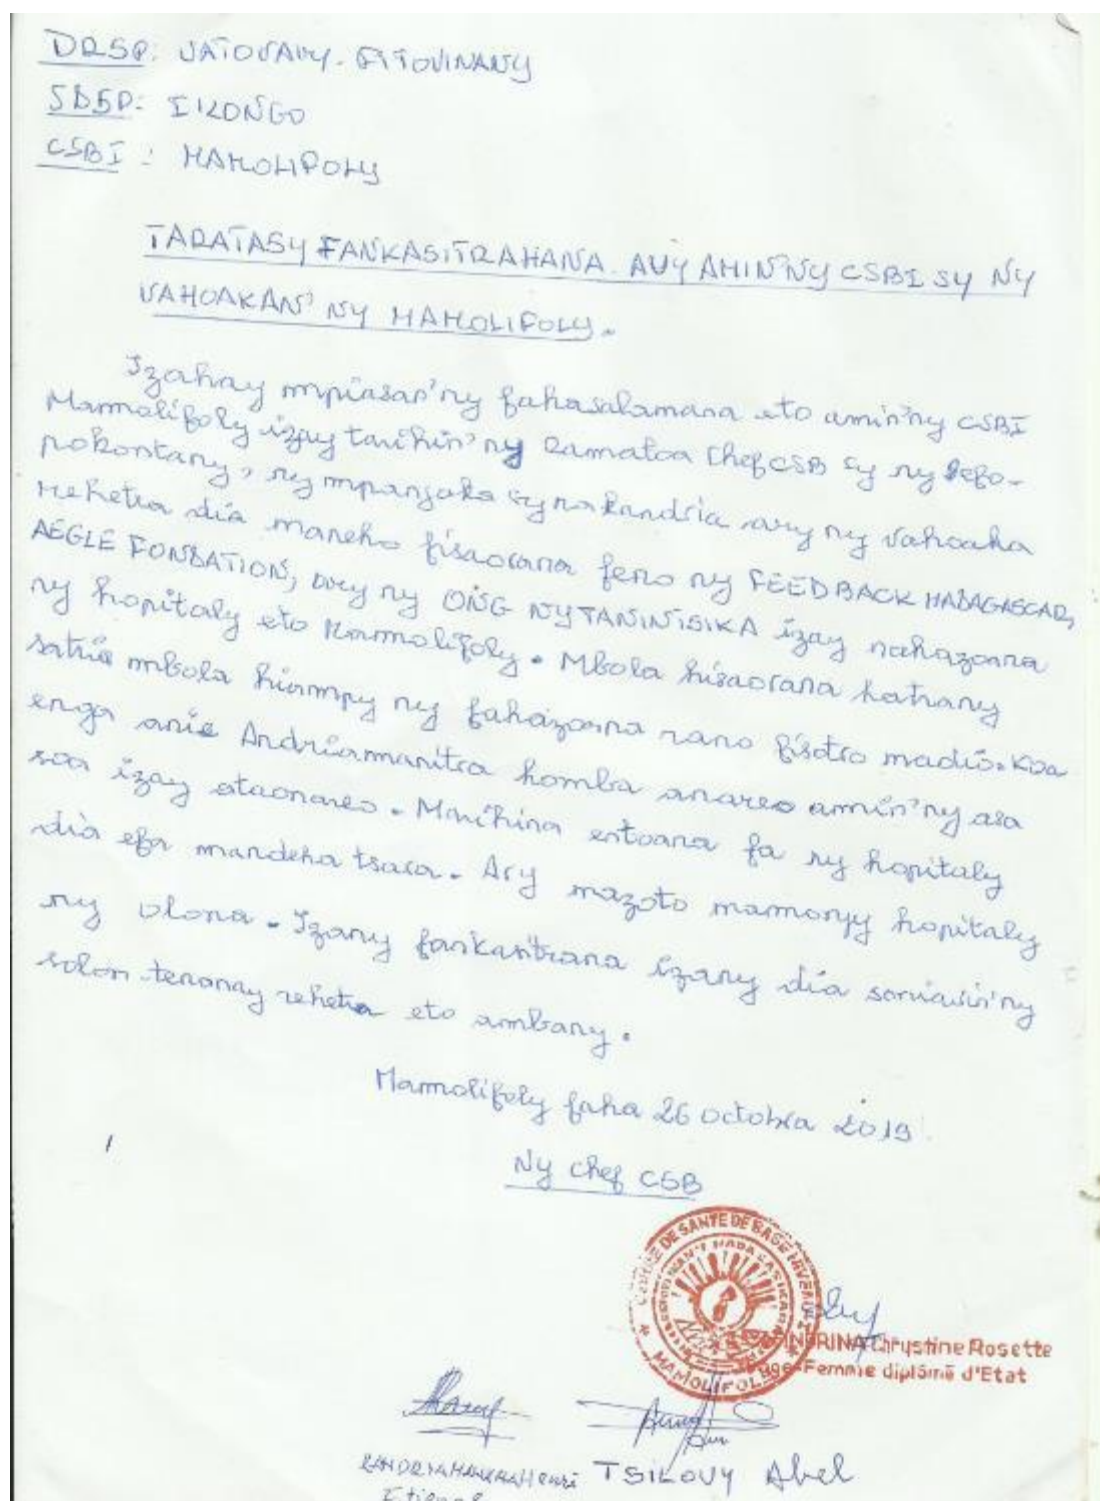 DRSP: VATOVAVY-FITOVINANY
SDSP: IKONGO
CSBI: MAMOLIFOLY
TARATASY FANKASITRAHANA AVY AMIN'NY CSBI SY NY
VAHOAKAN'NY MAMOLIFOLY.
Izahay mpiasan'ny fahasalamana eto amin'ny CSBI
Mamolifoly izay tarihin'ny Ramatoa Chef CSB sy ny Sefo-
pokontany, ny mpanjaka sy ary ny vahoaka
rehetra dia maneho fisaorana feno ny FEEDBACK MADAGASCAR,
AEGLE FONDATION, ary ny ONG NY TANINTSIKA izay nahazoana
ny hopitaly eto Mamolifoly. Mbola hisaorana hatrany
satria mbola hiampy ny fahazoana rano fisotro madio. Koa
enga anie Andriamanitra homba anareo amin'ny asa
soa izay ataonareo. Marihina entoana fa ny hopitaly
dia efa mandeha tsara. Ary mazoto mamonjy hopitaly
ny olona. Izany fankasitrana izany dia soniavin'ny
solon-tenanay rehetra eto ambany.
Mamolifoly faha 26 octobra 2019
Ny chef CSB
CENTRE DE SANTE DE BASE NIVEAU I
MAMOLIFOLY
Chrystine Rosette
Sage-Femme diplômé d'Etat
TSILOVY Abel